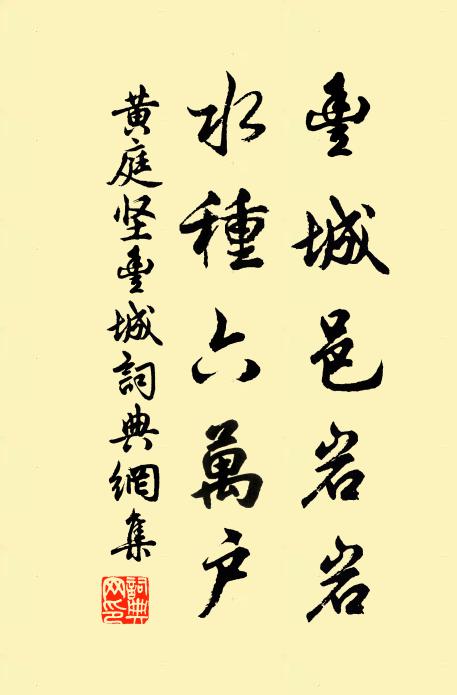 豊城邑岩岩
水種六萬户
黄庭坚豊城詞典網集
詞典网印